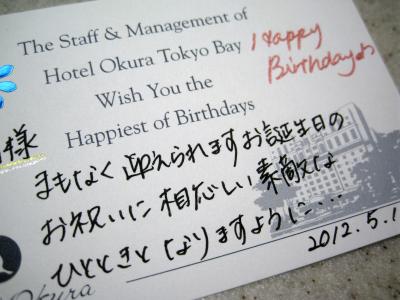 The Staff & Management of
Hotel Okura Tokyo Bay
Wish You the
Happiest of Birthdays
Happy
Birthday♪
様
まもなく迎えられますお誕生日の
お祝いに相応しい素敵な
ひとときとなりますように...
2012.5.1
Okura